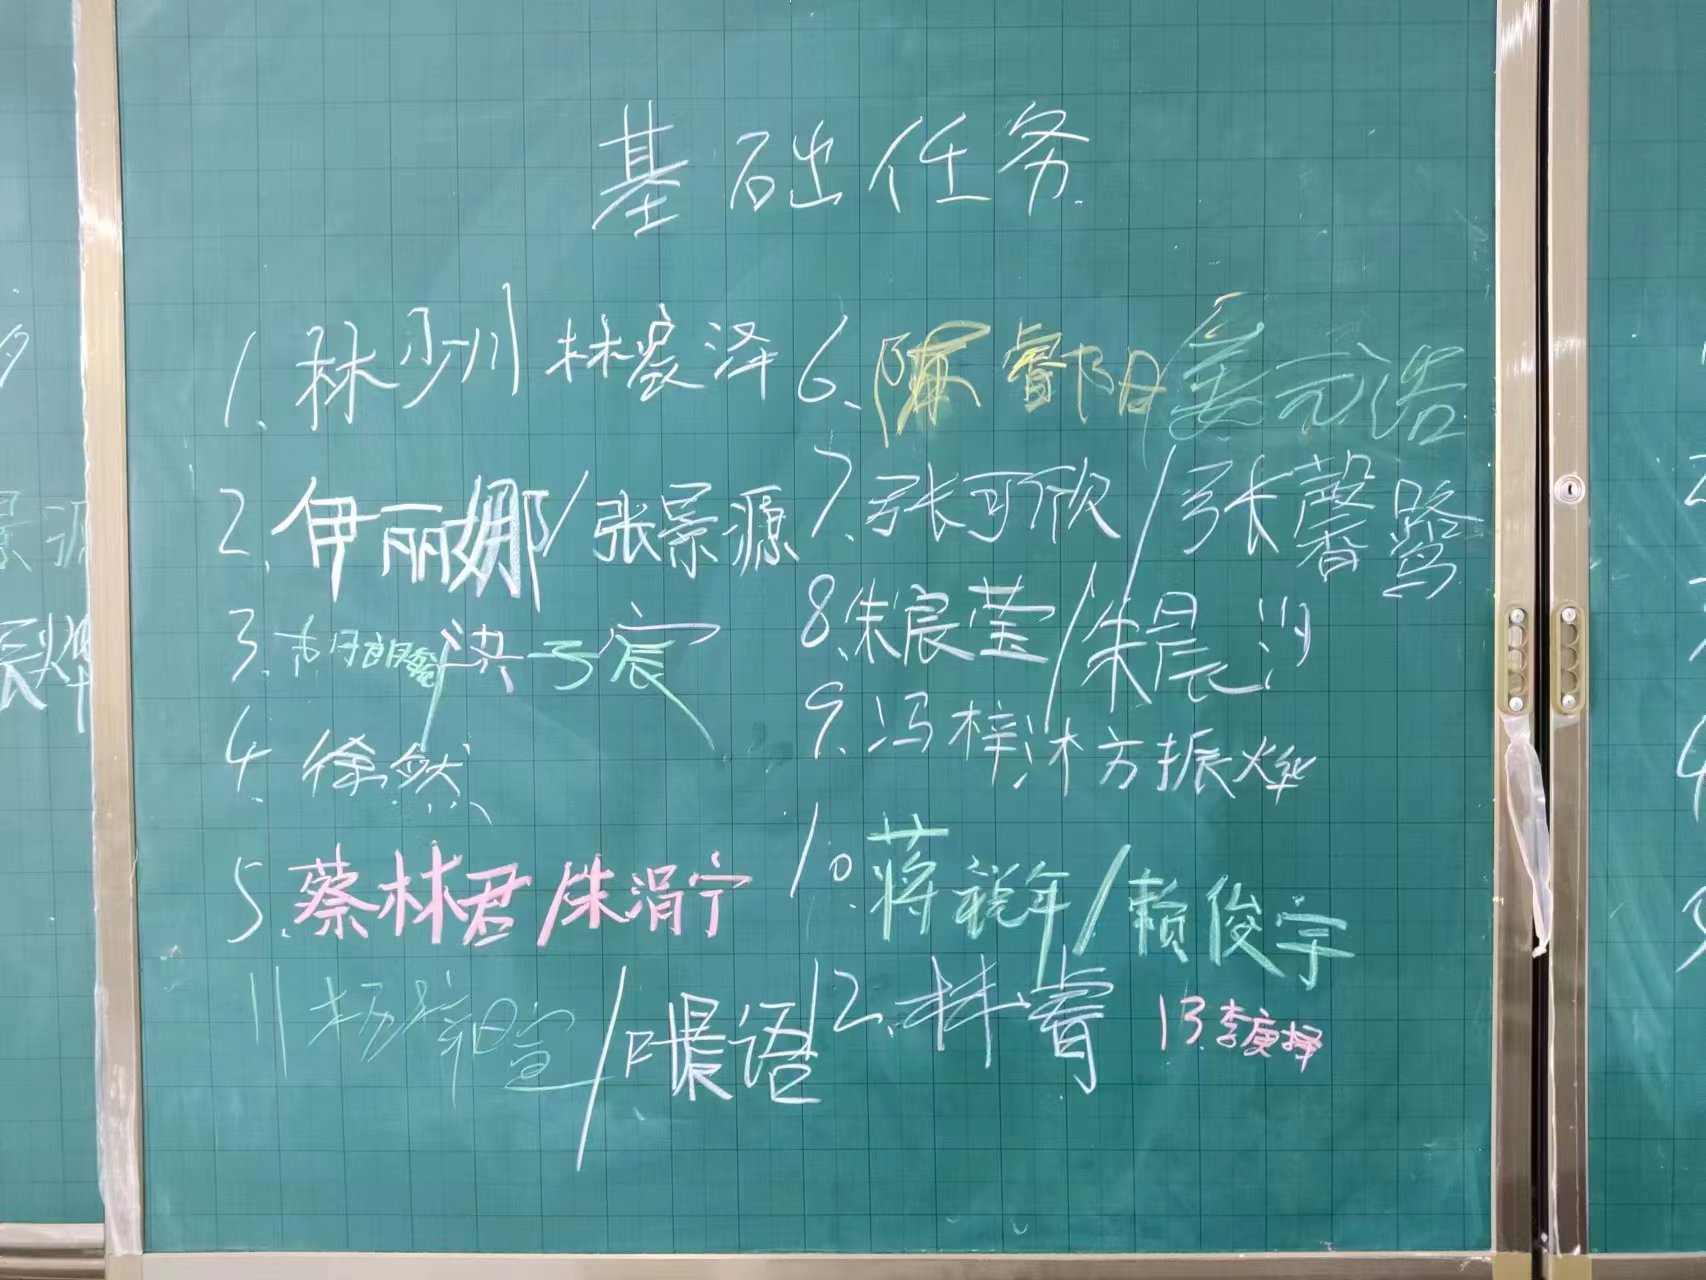 基础任务
1. 林少川 林宸泽
2. 伊丽娜/张景源
3. 洪子宸
4. 徐然
5. 蔡林君/朱涓宁
6. 陈睿阳/姜元浩
7. 张可欣/张馨鹭
8. 朱宸莹/朱晨汐
9. 冯梓沐 方振烨
10. 蒋税年/赖俊宇
11 杨梓萱/ 语
12. 林睿
13. 李庚择
景源
辰烨